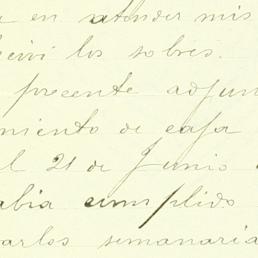 en atender mis
los sobres.
precente adjun
miento de caja
el 21 de Junio
abia cumplido
arlos semanaria